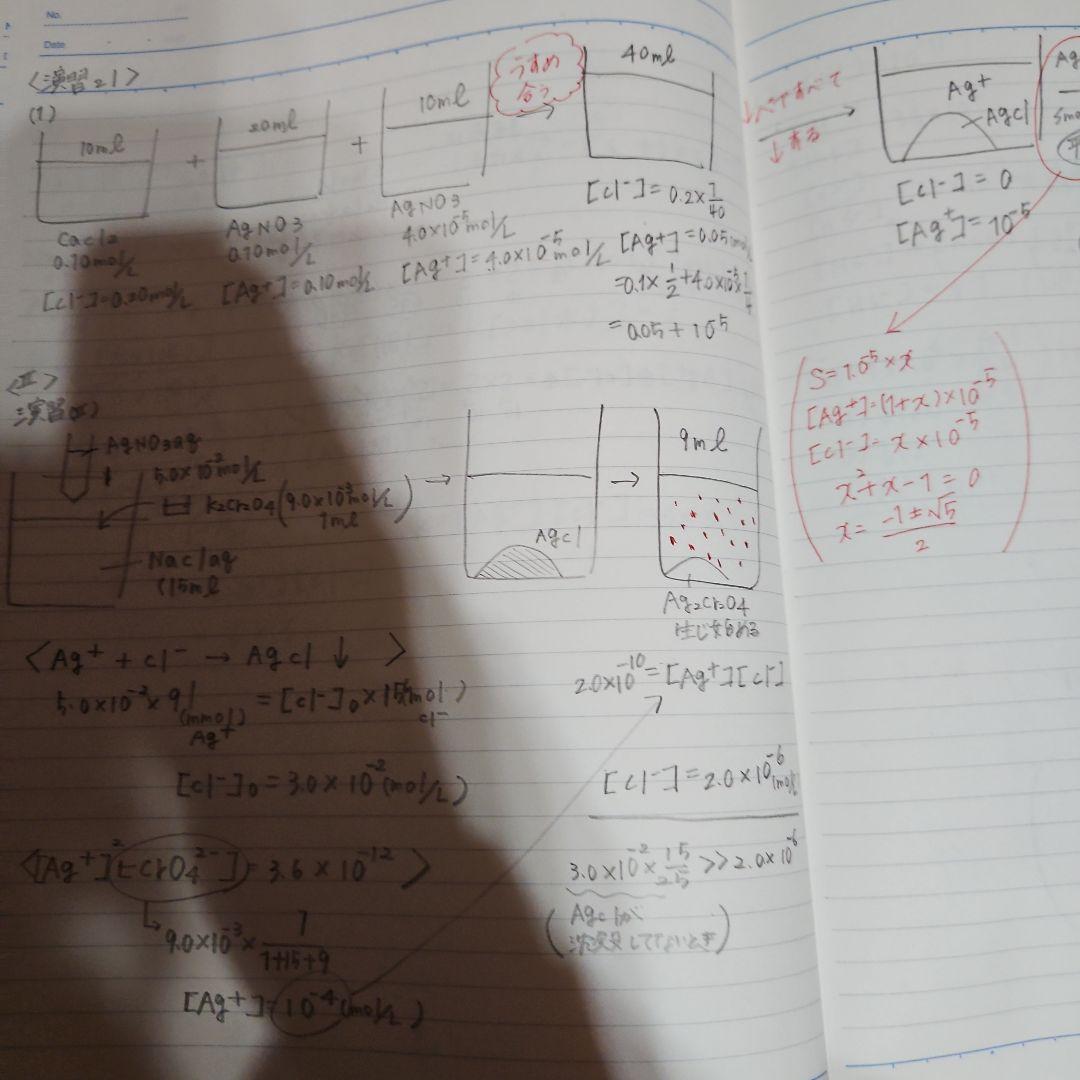 No.
Date
〈演習21〉
(1)
10ml
+
20ml
+
10ml
うすめ
合う
→
40ml
CaCl2
0.10mol/L
[Cl-]=0.20mol/L
AgNO3
0.10mol/L
[Ag+]=0.10mol/L
AgNO3
4.0×10-5mol/L
[Ag+]=4.0×10-5mol/L
[Cl-]=0.2×1/40
[Ag+]=0.05
=0.1×1/2+4.0×10-5×1/4
=0.05+10-5
Ag+
AgCl
[Cl-]=0
[Ag+]=10-5
S=1.0-5×x
[Ag+]=(1+x)×10-5
[Cl-]=x×10-5
x2+x-1=0
x=-1±√5/2
〈II〉
演習
AgNO3aq
5.0×10-2mol/L
K2CrO4(9.0×10-3mol/L)
1ml
NaClaq
15ml
→
AgCl
→
9ml
Ag2CrO4
生じ始める
〈Ag+ + Cl- → AgCl↓〉
5.0×10-2×9=[Cl-]0×15(mmol)
(mmol)
Ag+
Cl-
[Cl-]0=3.0×10-2(mol/L)
〈[Ag+]2[CrO42-]=3.6×10-12〉
9.0×10-3×1/1+15+9
[Ag+]=10-4(mol/L)
2.0×10-10=[Ag+][Cl-]
[Cl-]=2.0×10-6(mol/L)
3.0×10-2×15/25>>2.0×10-6
(AgClが
沈殿してないとき)